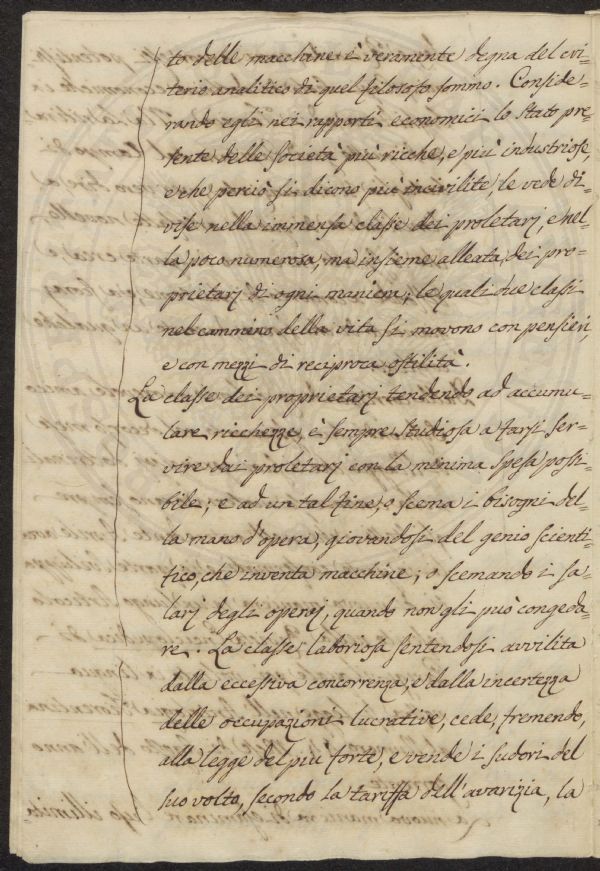 to delle macchine è veramente degna del cri-
terio analitico di quel filosofo sommo. Conside-
rando egli nei rapporti economici lo stato pre-
sente delle società più ricche, e più industriose,
e che perciò si dicono più incivilite, le vede di-
vise nella immensa classe dei proletarj, e nel-
la poco numerosa, ma insieme alleata, dei pro-
prietarj di ogni maniera; le quali due classi
nel cammino della vita si movono con pensieri,
e con mezzi di reciproca ostilità.
La classe dei proprietarj tendendo ad accumu-
lare ricchezze, è sempre studiosa a farsi ser-
vire dai proletarj con la minima spesa possi-
bile; e ad un tal fine, o scema i bisogni del-
la mano d'opera, giovandosi del genio scienti-
fico, che inventa macchine; o scemando i sa-
larj degli operaj, quando non gli può congeda-
re. La classe laboriosa sentendosi avvilita
dalla eccessiva concorrenza, e dalla incertezza
delle occupazioni lucrative, cede, fremendo,
alla legge del più forte, e vende i sudori del
suo volto, secondo la tariffa dell'avarizia, la